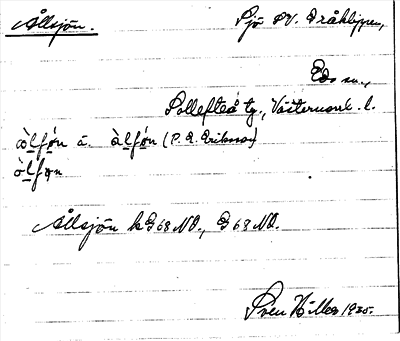 Ållsjön. Sjö SV. Dråklippen,
Eds sn.,
Sollefteå tg., Västernorrl. l.
òlfón ä. àlfón (P. E. Eriksson)
òlfon
Ållsjön k G68 NO., G 68 NO.
Sven Hiller 1935.